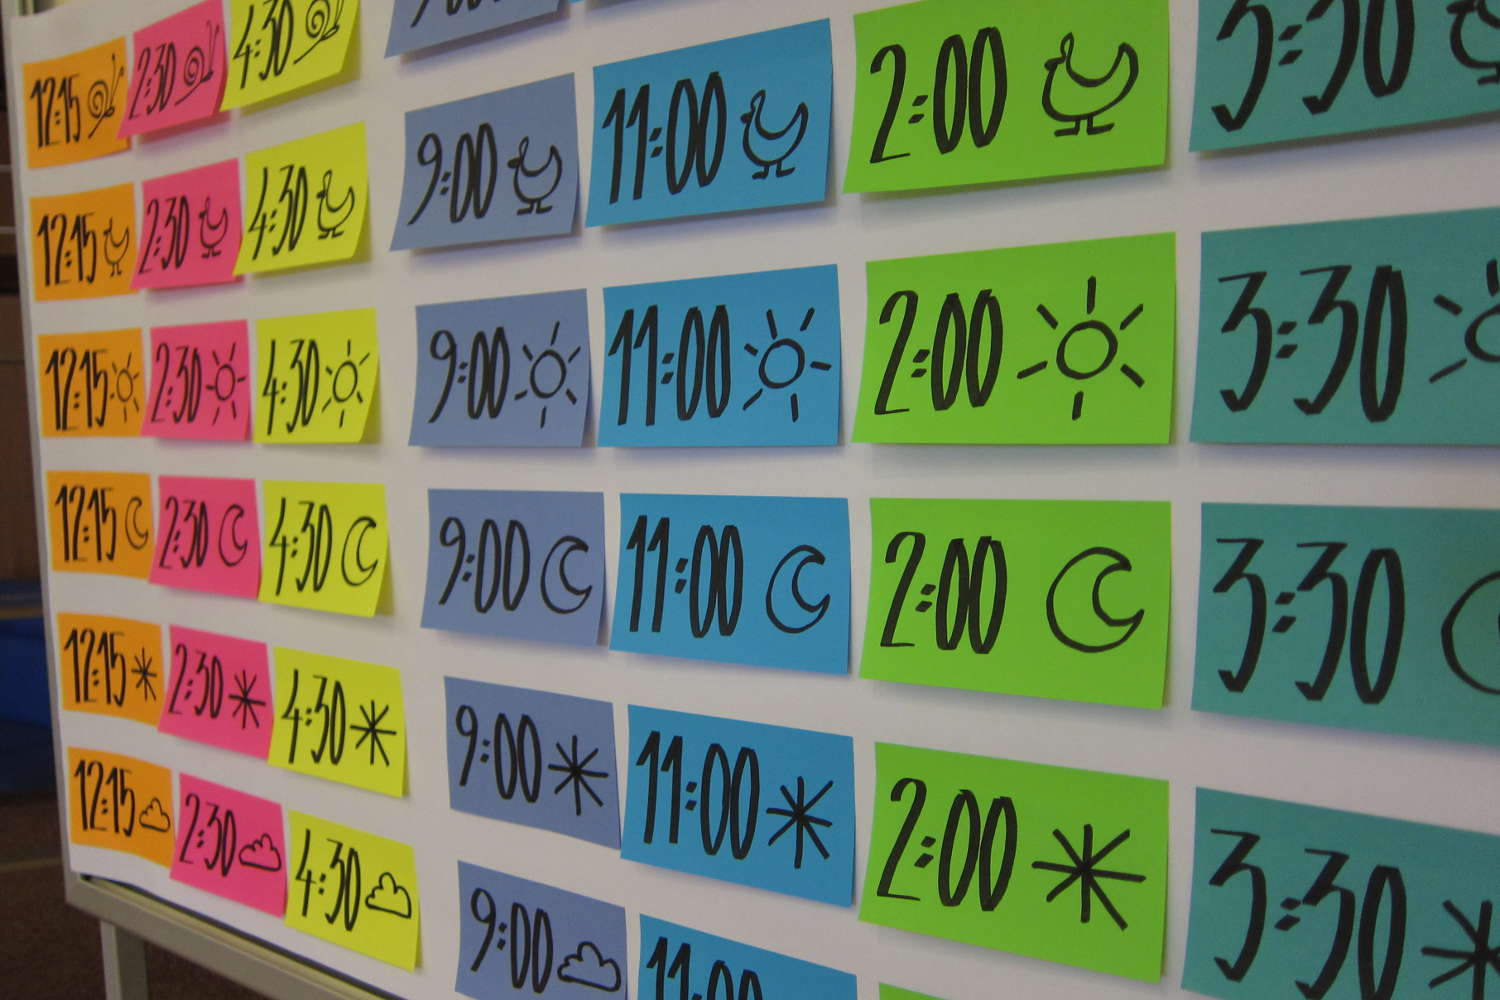 12:15
2:30
4:30
9:00
12:15
2:30
4:30
9:00
11:00
2:00
3:30
12:15
2:30
4:30
9:00
11:00
2:00
3:30
12:15
2:30
4:30
9:00
11:00
2:00
3:30
12:15
2:30
4:30
9:00
11:00
2:00
3:30
12:15
2:30
4:30
9:00
11:00